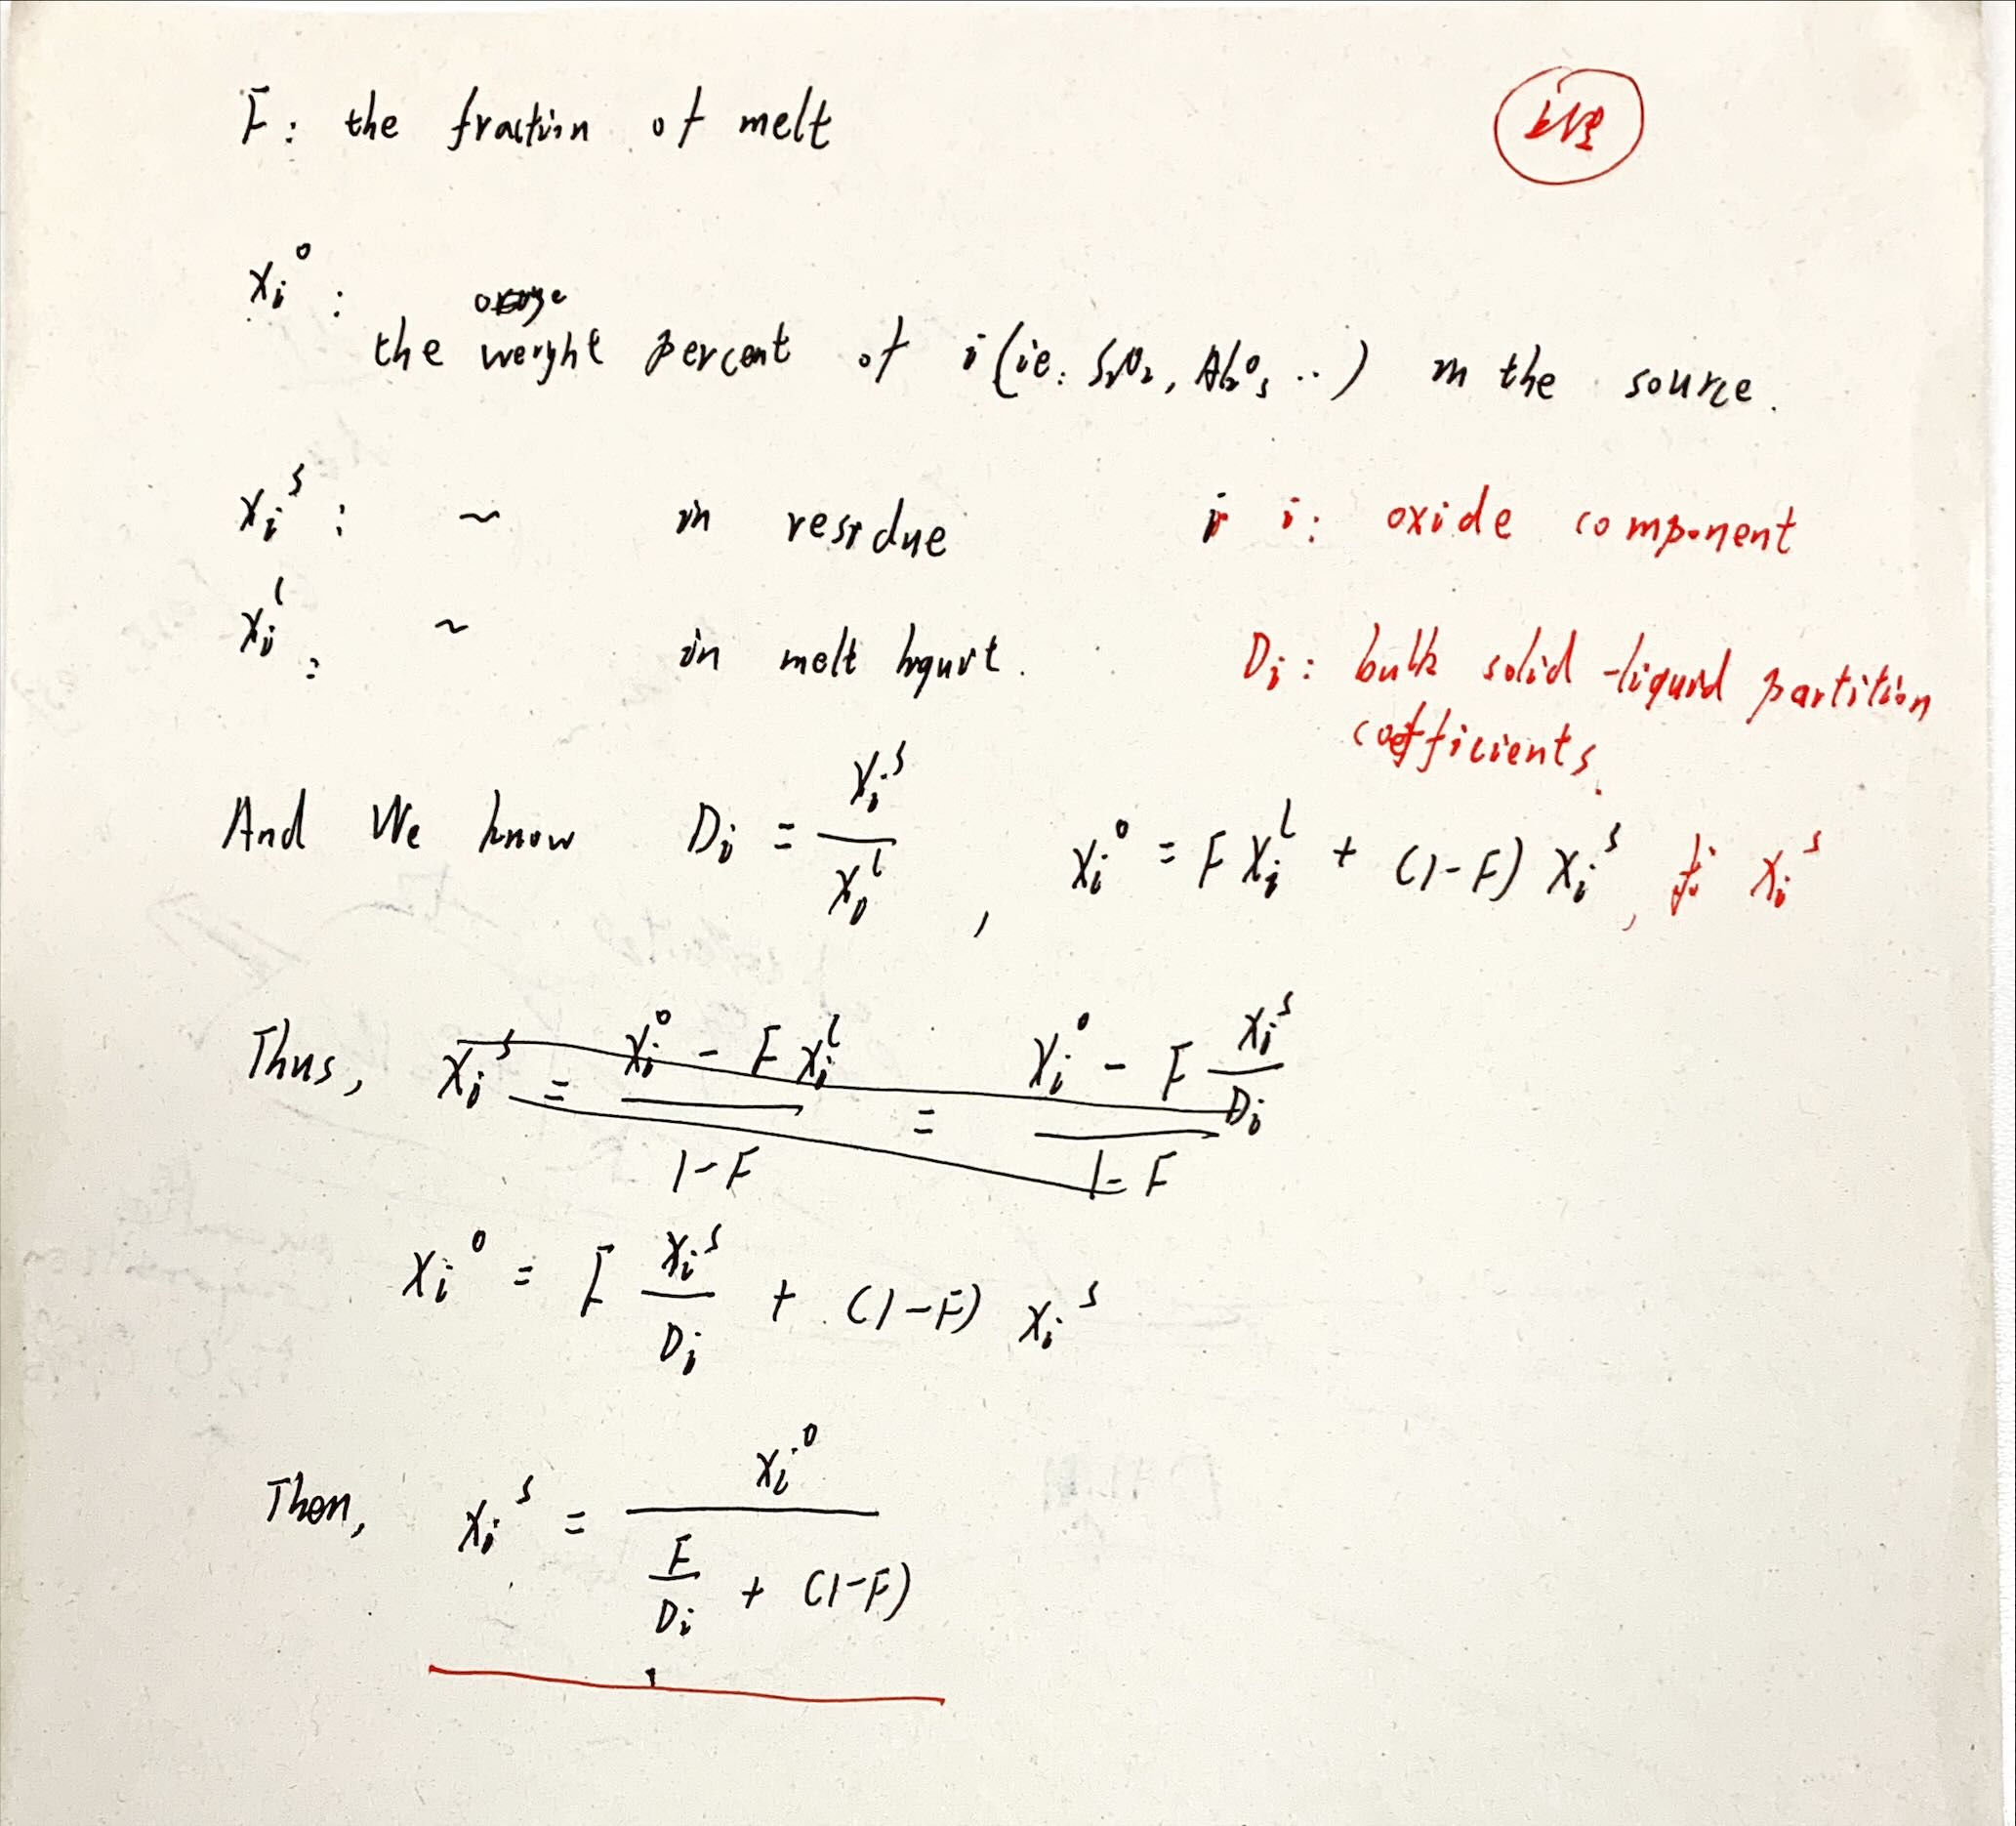 F: the fraction of melt
Xi⁰:
the weight percent of i (ie. SiO₂, Al₂O₃ ..) in the source.
Xiˢ: ~ in residue
i: oxide component
Xiˡ: ~ in melt liquid.
Di: bulk solid-liquid partition
coefficients.
And We know Di = Xiˢ / Xiˡ , Xi⁰ = F Xiˡ + (1-F) Xiˢ, Xiˢ
Thus, Xiˢ = (Xi⁰ - F Xiˡ) / (1-F) = (Xi⁰ - F Xiˢ/Di) / (1-F)
Xi⁰ = F Xiˢ/Di + (1-F) Xiˢ
Then, Xiˢ = Xi⁰ / (F/Di + (1-F))